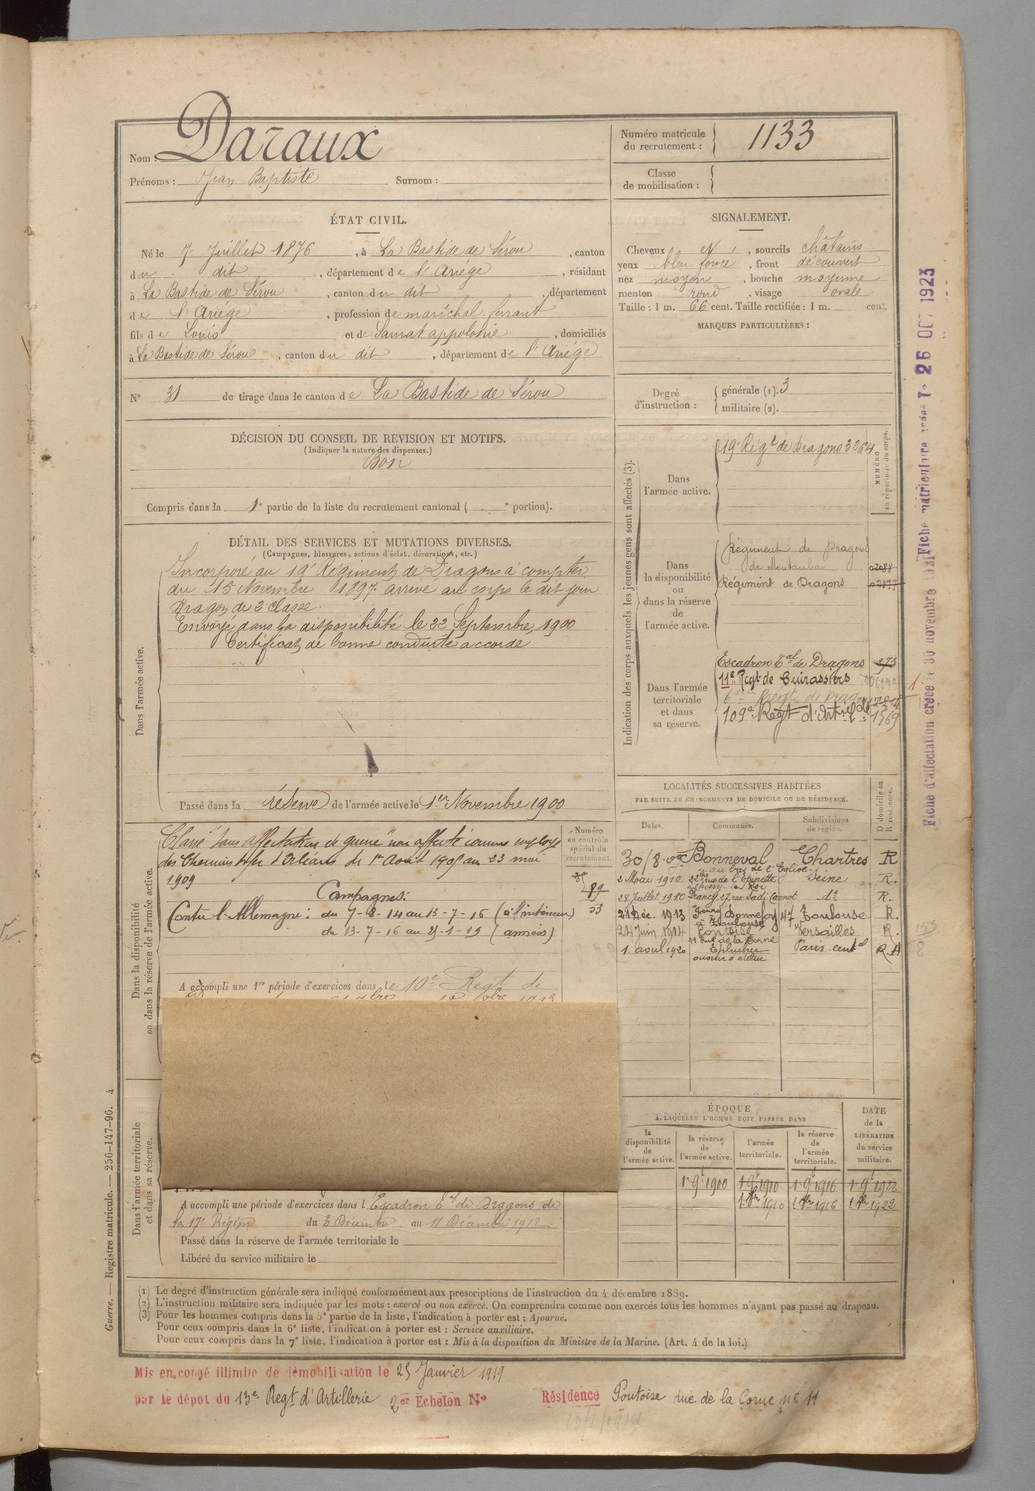 Nom : Daraux
Prénoms : Jean Baptiste Surnom :
Numéro matricule du recrutement : 1133
Classe de mobilisation :
ÉTAT CIVIL.
Né le 7 Juillet 1876, à La Bastide de Sérou, canton
du dit, département de l'Ariège, résidant
à La Bastide de Sérou, canton du dit, département
de l'Ariège, profession de maréchal ferrant
fils de Louis et de Saurat appolonie, domiciliés
à La Bastide de Sérou, canton du dit, département de l'Ariège
SIGNALEMENT.
Cheveux et, sourcils châtains
yeux bleu foncé, front découvert
nez moyen, bouche moyenne
menton rond, visage ovale
Taille : 1 m. 66 cent. Taille rectifiée : 1 m. cent.
MARQUES PARTICULIÈRES :
N° 31 de tirage dans le canton de La Bastide de Sérou
Degré d'instruction : générale (1). 3
militaire (2).
DÉCISION DU CONSEIL DE REVISION ET MOTIFS.
(Indiquer la nature des dispenses.)
Bon
Compris dans la 1e partie de la liste du recrutement cantonal ( e portion).
DÉTAIL DES SERVICES ET MUTATIONS DIVERSES.
(Campagnes, blessures, actions d'éclat, décorations, etc.)
Dans l'armée active.
Incorporé au 19e Régiment de Dragons à compter
du 15 Novembre 1897 arrivé au corps le dit jour
Dragon de 2e classe.
Envoyé dans la disponibilité le 22 Septembre 1900
Certificat de bonne conduite accordé
Passé dans la réserve de l'armée active le 1er Novembre 1900
Indication des corps auxquels les jeunes gens sont affectés (3).
NUMÉRO au répertoire du corps.
Dans l'armée active.
19e Régt de Dragons 3064
Dans la disponibilité ou dans la réserve de l'armée active.
Régiment de Dragons
de Montauban
Régiment de Dragons
Dans l'armée territoriale et dans sa réserve.
Escadron Cal de Dragons
11e Régt de Cuirassiers
Régt de Dragons
109e Régt d'Artie 1569
Dans la disponibilité ou dans la réserve de l'armée active.
Classé "sans affectation de guerre" non affecté comme employé
des Chemins de fer d'Orléans du 1er Août 1905 au 23 mai
1909
Campagnes:
Contre l'Allemagne : du 7-8-14 au 13-7-16 (à l'intérieur)
du 13-7-16 au 25-1-19 (armées)
Numéro au contrôle spécial du recrutement.
A accompli une 1re période d'exercices dans le 10e Régt de
LOCALITÉS SUCCESSIVES HABITÉES
PAR SUITE DE CHANGEMENTS DE DOMICILE OU DE RÉSIDENCE.
Dates. Communes. Subdivisions de région. D domicile ou R résidence.
30/8.05 Bonneval Chartres R
2 Mai 1910 Choisy le Roi Seine R.
28 Juillet 1910 Drancy, 27 rue Sadi Carnot do R.
21 Déc. 1913 à Toulouse Toulouse R.
24 Juin 1914 Pontoise Versailles R.
11 rue de la Corne
1. avril 1920 Epluches Paris centel R A
Dans l'armée territoriale et dans sa réserve.
A accompli une période d'exercices dans l'Escadron Cal de Dragons de
la 17e Région du 2 Décembre au 11 Décembre 1912
Passé dans la réserve de l'armée territoriale le
Libéré du service militaire le
ÉPOQUE
A LAQUELLE L'HOMME DOIT PASSER DANS
la disponibilité de l'armée active. la réserve de l'armée active. l'armée territoriale. la réserve de l'armée territoriale.
DATE de la LIBÉRATION du service militaire.
1er 9e 1900 1er 9e 1910 1er 9e 1916 1er 9e 1922
1er 8bre 1910 1er 8bre 1916 1er 8bre 1922
(1) Le degré d'instruction générale sera indiqué conformément aux prescriptions de l'instruction du 4 décembre 1889.
(2) L'instruction militaire sera indiquée par les mots : exercé ou non exercé. On comprendra comme non exercés tous les hommes n'ayant pas passé au drapeau.
(3) Pour les hommes compris dans la 5e partie de la liste, l'indication à porter est : Ajourné.
Pour ceux compris dans la 6e liste, l'indication à porter est : Service auxiliaire.
Pour ceux compris dans la 7e liste, l'indication à porter est : Mis à la disposition du Ministre de la Marine. (Art. 4 de la loi.)
Guerre. — Registre matricule. — 256-147-96. 4
Mis en congé illimité de démobilisation le 25 Janvier 1919
par le dépôt du 13e Régt d'Artillerie 2er Echelon N° Résidence Pontoise rue de la Corne n° 11
Fiche d'affectation créée le 30 novembre
Fiche matriculaire créée le 26 OCT 1923